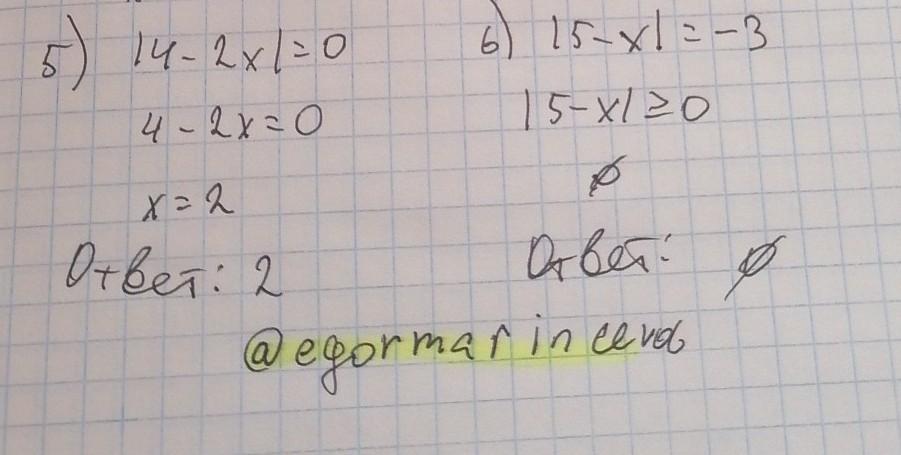 5) |4-2x|=0
4-2x=0
x=2
Ответ: 2
6) |5-x|=-3
|5-x|≥0
∅
Ответ: ∅